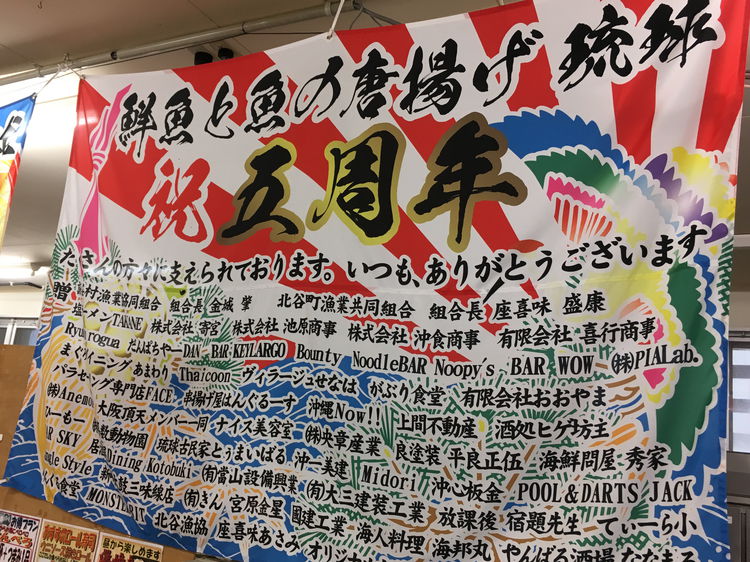 鮮魚と魚の唐揚げ 琉球
祝 五周年
たくさんの方々に支えられております。いつも、ありがとうございます
贈 村漁業協同組合 組合長 金城 肇 北谷町漁業共同組合 組合長 座喜味 盛康
塩ーメンTAKANE 株式会社 寄宮 株式会社 池原商事 株式会社 沖食商事 有限会社 喜行商事
Ryu rogua だんぱちやー DAN BAR KEYLARGO Bounty NoodleBAR Noopy's BAR WOW ㈱PIALab.
まぐ ダイニング あまわり Thaicoon ヴィラージュせなは がぶり食堂 有限会社おおやま
パラセ ング専門店FACE 串揚げ屋はんぐるーす 沖縄Now!! 上間不動産 酒処ヒゲ坊主
㈱Anemo 大阪頂天メンバー一同 ナイス美容室 ㈱央章産業 良塗装 平良正伍 海鮮問屋 秀家
ひーもー 動物園 琉球古民家とぅまいばる 沖一美建 Midori 沖心板金 POOL&DARTS JACK
R SKY 居 Dining Kotobuki ㈲當山設備興業 ㈲大三建装工業 放課後 宿題先生 てぃーら小
le Style 三味線店 ㈲きん 宮原金星 國建工業 海人料理 海邦丸 やんばる酒場 ななまる
食堂 MONSTER 北谷漁協 座喜味あさみ オリジ
昼から楽しめます